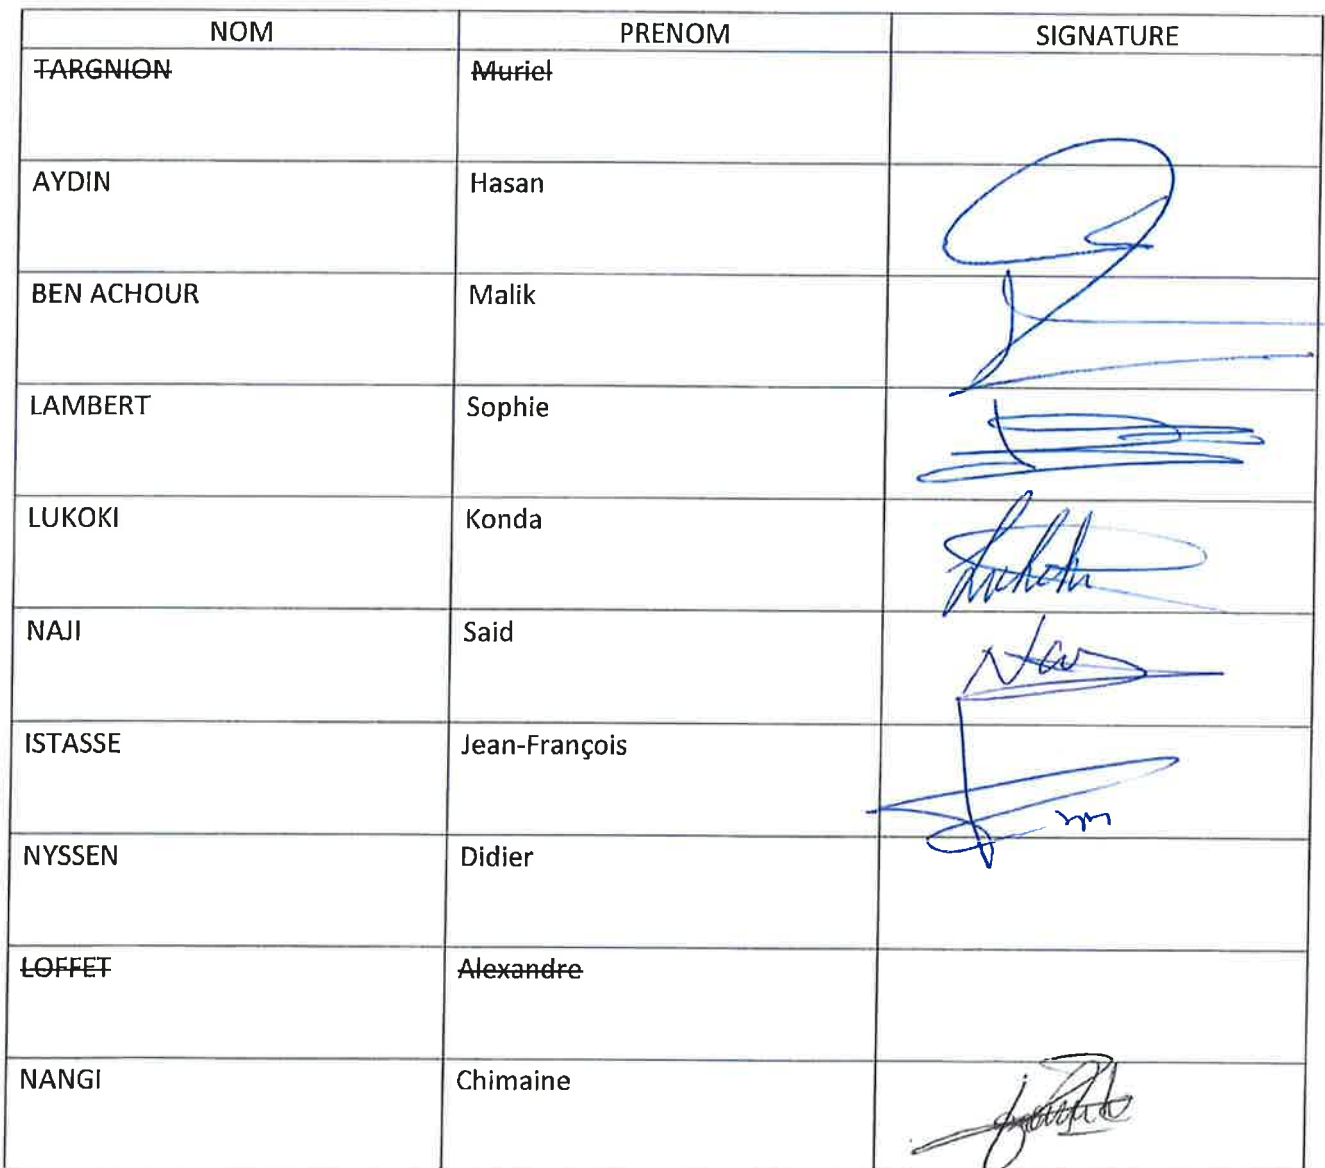 NOM PRENOM SIGNATURE
TARGNION Muriel
AYDIN Hasan
BEN ACHOUR Malik
LAMBERT Sophie
LUKOKI Konda
NAJI Said
ISTASSE Jean-François
NYSSEN Didier
LOFFET Alexandre
NANGI Chimaine